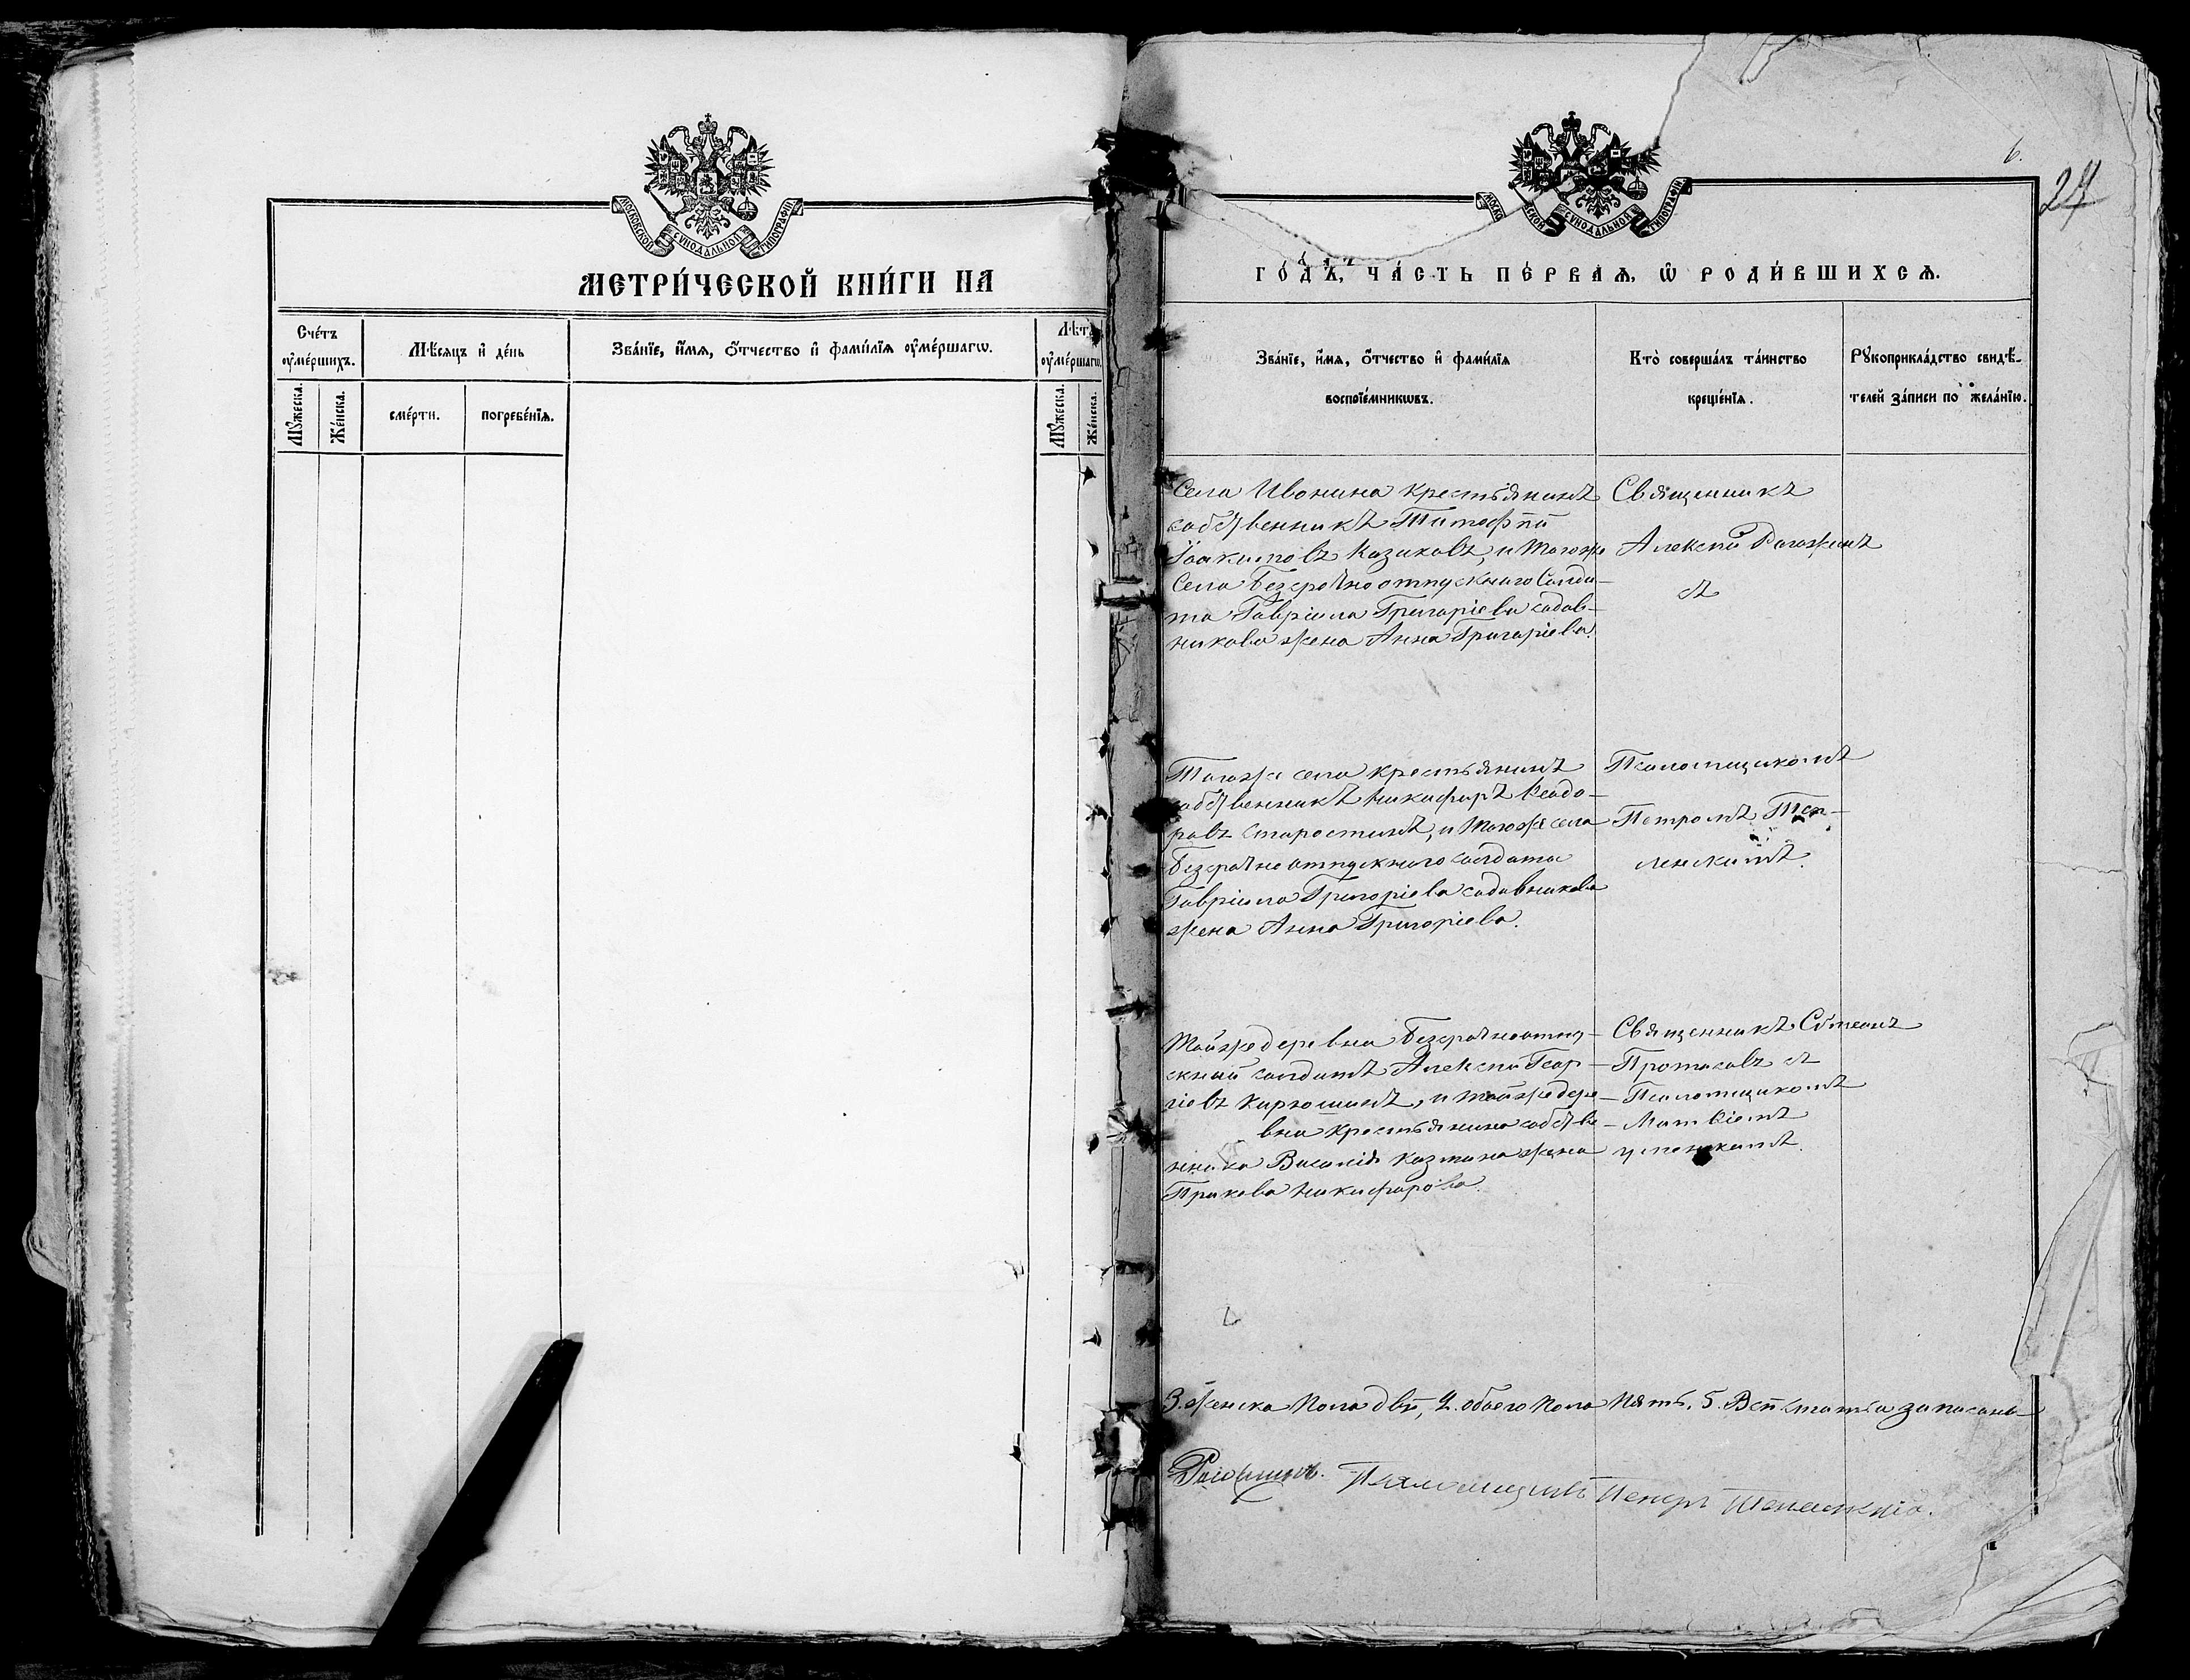 МОСКОВСКОЙ СѴНОДАЛЬНОЙ ТИПОГРАФІИ
МЕТРИ́ЧЕСКОЙ КНИ́ГИ НА
Сче́тъ ᲂу҆ме́ршихъ.
Мѣ́сяцъ и҆ де́нь
Зва́нїе, и҆́мѧ, ѻ҆́тчество и҆ фами́лїѧ ᲂу҆ме́ршагѡ.
Лѣ́та ᲂу҆ме́ршагѡ.
Мꙋ́жеска.
Же́нска.
сме́рти.
погребе́нїѧ.
Мꙋ́жеска.
Же́нска.
6.
27
МОСКОВСКОЙ СѴНОДАЛЬНОЙ ТИПОГРАФІИ
ГО́ДЪ, ЧА́СТЬ ПЕ́РВАѦ, Ѡ҆ РОДИ́ВШИХСѦ.
Зва́нїе, и҆́мѧ, ѻ҆́тчество и҆ фами́лїѧ
воспрїе́мникѡвъ.
Кто̀ соверша́лъ та́инство
креще́нїѧ.
Рꙋкоприкла́дство свидѣ́-
телей за́писи по жела́нїю.
Села Ивонина крестьянинъ
собственникъ Тимофѣй
Іоакимовъ Казаковъ, и тогоже
Села безсрочноотпускнаго Солда-
та Гавріила Григоріева садов-
никова жена Анна Григоріева.
Священникъ
Алексѣй Рогожинъ
съ
Тогоже села крестьянинъ
собственникъ Никифоръ Ѳеодо-
ровъ Старостинъ, и тогоже села
безсрочноотпускнаго солдата
Гавріила Григоріева садовникова
жена Анна Григоріева.
Псаломщикомъ
Петромъ Теп-
ленскимъ.
Тойже деревни безсрочноотпу-
скный солдатъ Алексѣй Геор-
гіевъ Кирюшинъ, и тойже дере-
вни крестьянина собстве-
нника Василія Казмина жена
Никифорова.
Священникъ Стефанъ
Протасовъ съ
Псаломщикомъ
Матвіемъ
3. женска пола двѣ, 2. обоего пола пять. 5. Всѣ статьи записаны
Рогожинъ. Псаломщикъ Петръ Тепленскій.